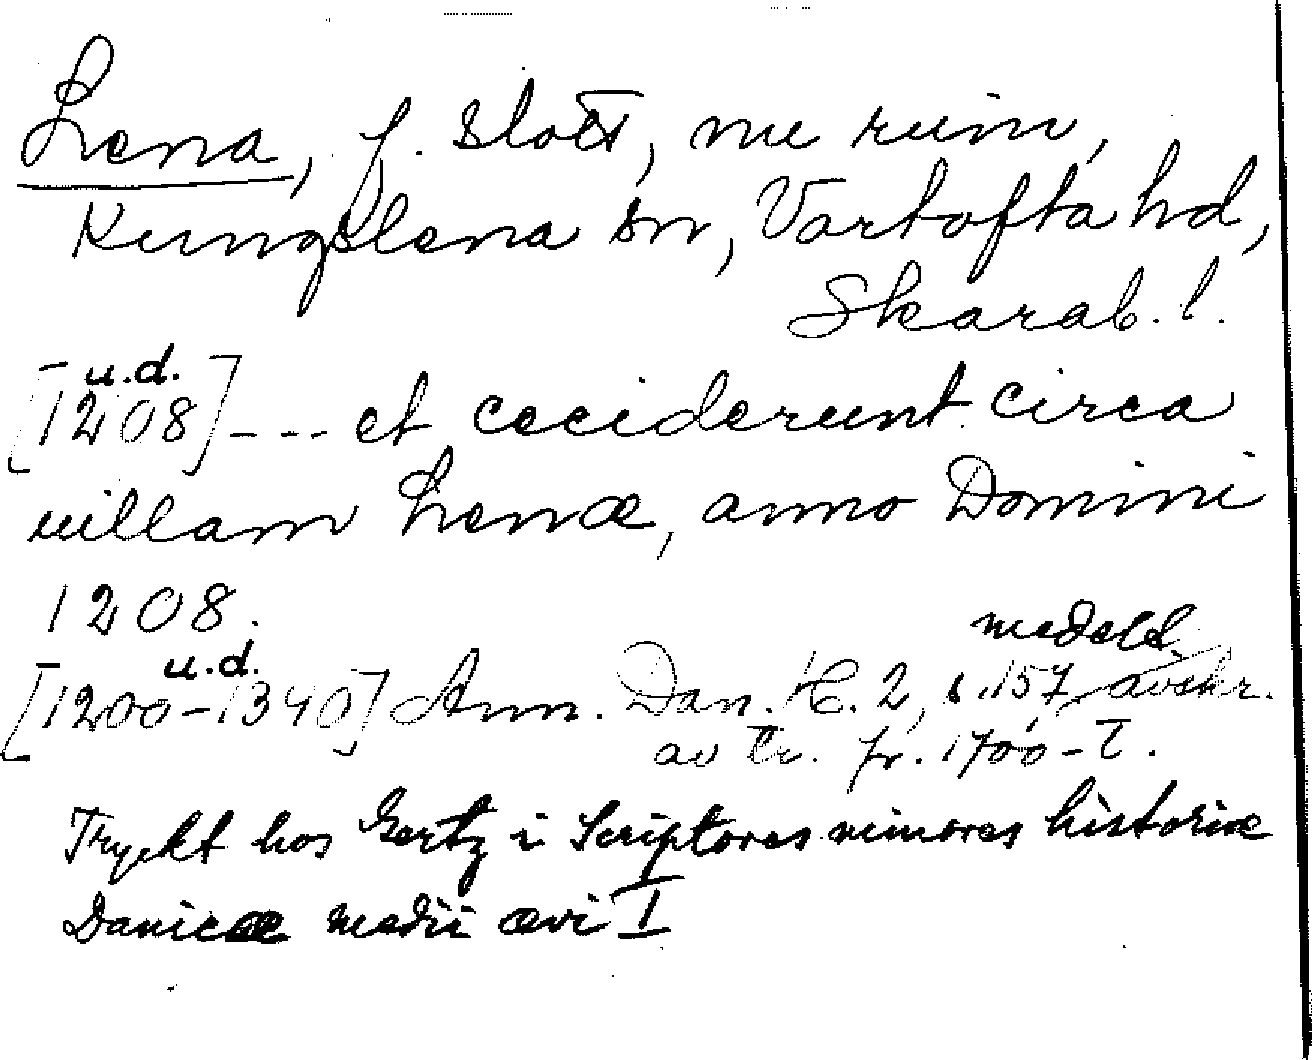 Lena, f. slott, nu ruin,
Kungslena sn, Vartofta hd,
Skarab. l.
u.d.
[1208] --- et ceciderunt circa
uillam Lenæ, anno Domini
1208.
medeld
u.d.
[1200-1340] Ann. Dan. H. 2, s. 157, avskr.
av tr. fr. 1700-t.
Tryckt hos Gertz i Scriptores minores historiæ
Danicæ medii ævi I